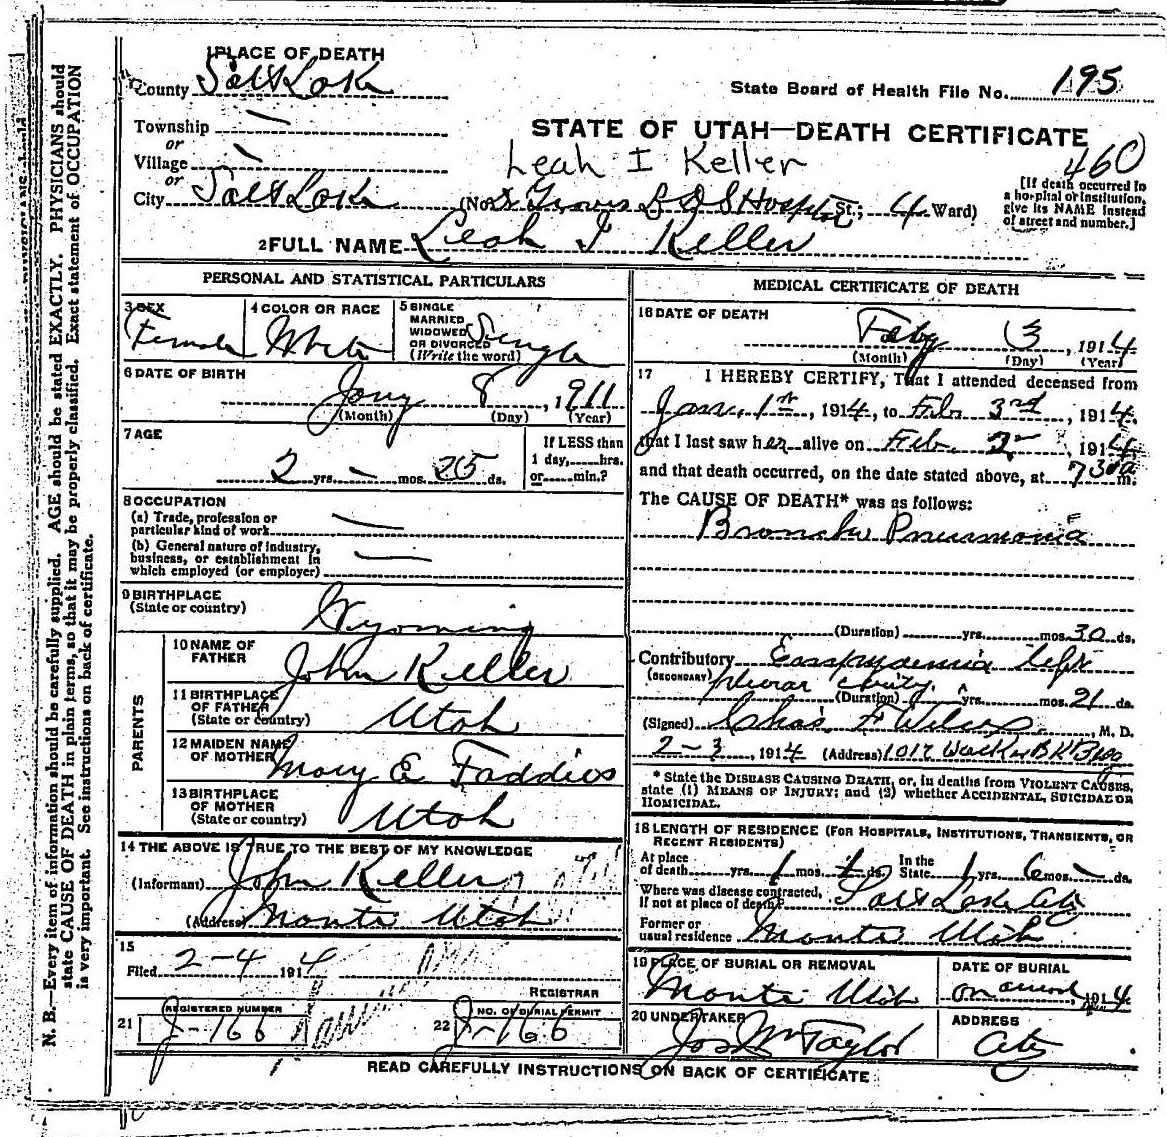 1 PLACE OF DEATH
County Salt Lake
State Board of Health File No. 195
Township —
or
STATE OF UTAH—DEATH CERTIFICATE
Village —
Leah I Keller
460
or
City Salt Lake (No. Groves L D S Hospital St.; 4 Ward)
[If death occurred in a hospital or institution, give its NAME instead of street and number.]
2 FULL NAME Leah I Keller
PERSONAL AND STATISTICAL PARTICULARS
3 SEX
Female
4 COLOR OR RACE
White
5 SINGLE
MARRIED
WIDOWED
OR DIVORCED
(Write the word)
Single
6 DATE OF BIRTH
Jany 8, 1911
(Month) (Day) (Year)
7 AGE
2 yrs. — mos. 25 ds.
If LESS than
1 day, hrs.
or min.?
8 OCCUPATION
(a) Trade, profession or
particular kind of work —
(b) General nature of industry,
business, or establishment in
which employed (or employer) —
9 BIRTHPLACE
(State or country)
Wyoming
PARENTS
10 NAME OF
FATHER
John Keller
11 BIRTHPLACE
OF FATHER
(State or country)
Utah
12 MAIDEN NAME
OF MOTHER
Mary E Faddies
13 BIRTHPLACE
OF MOTHER
(State or country)
Utah
14 THE ABOVE IS TRUE TO THE BEST OF MY KNOWLEDGE
(Informant) John Keller
(Address) Manti Utah
15
Filed 2-4 1914
REGISTRAR
21 REGISTERED NUMBER
J-166
22 NO. OF BURIAL PERMIT
J-166
MEDICAL CERTIFICATE OF DEATH
16 DATE OF DEATH
Feby 3, 1914
(Month) (Day) (Year)
17 I HEREBY CERTIFY, That I attended deceased from
Jan. 1st, 1914, to Feb. 3rd, 1914,
that I last saw her alive on Feb. 1914
and that death occurred, on the date stated above, at 730 a m.
The CAUSE OF DEATH* was as follows:
Broncho Pneumonia
(Duration) yrs. mos. 30 ds.
Contributory left
(SECONDARY) pleural cavity.
(Duration) yrs. mos. 21 ds.
(Signed) Chas. F Wilcox, M. D.
2-3, 1914 (Address) 1017 Walker BK Bldg
* State the DISEASE CAUSING DEATH, or, in deaths from VIOLENT CAUSES,
state (1) MEANS OF INJURY; and (2) whether ACCIDENTAL, SUICIDAL OR
HOMICIDAL.
18 LENGTH OF RESIDENCE (FOR HOSPITALS, INSTITUTIONS, TRANSIENTS, OR
RECENT RESIDENTS)
At place
of death yrs. 1 mos. 1 ds. In the
State 1 yrs. 6 mos. — ds.
Where was disease contracted,
If not at place of death? Salt Lake City
Former or
usual residence Manti Utah
19 PLACE OF BURIAL OR REMOVAL
Manti Utah
DATE OF BURIAL
on 1914
20 UNDERTAKER
Jos Wm Taylor
ADDRESS
City
READ CAREFULLY INSTRUCTIONS ON BACK OF CERTIFICATE
N. B.—Every item of information should be carefully supplied. AGE should be stated EXACTLY. PHYSICIANS should
state CAUSE OF DEATH in plain terms, so that it may be properly classified. Exact statement of OCCUPATION
is very important. See instructions on back of certificate.